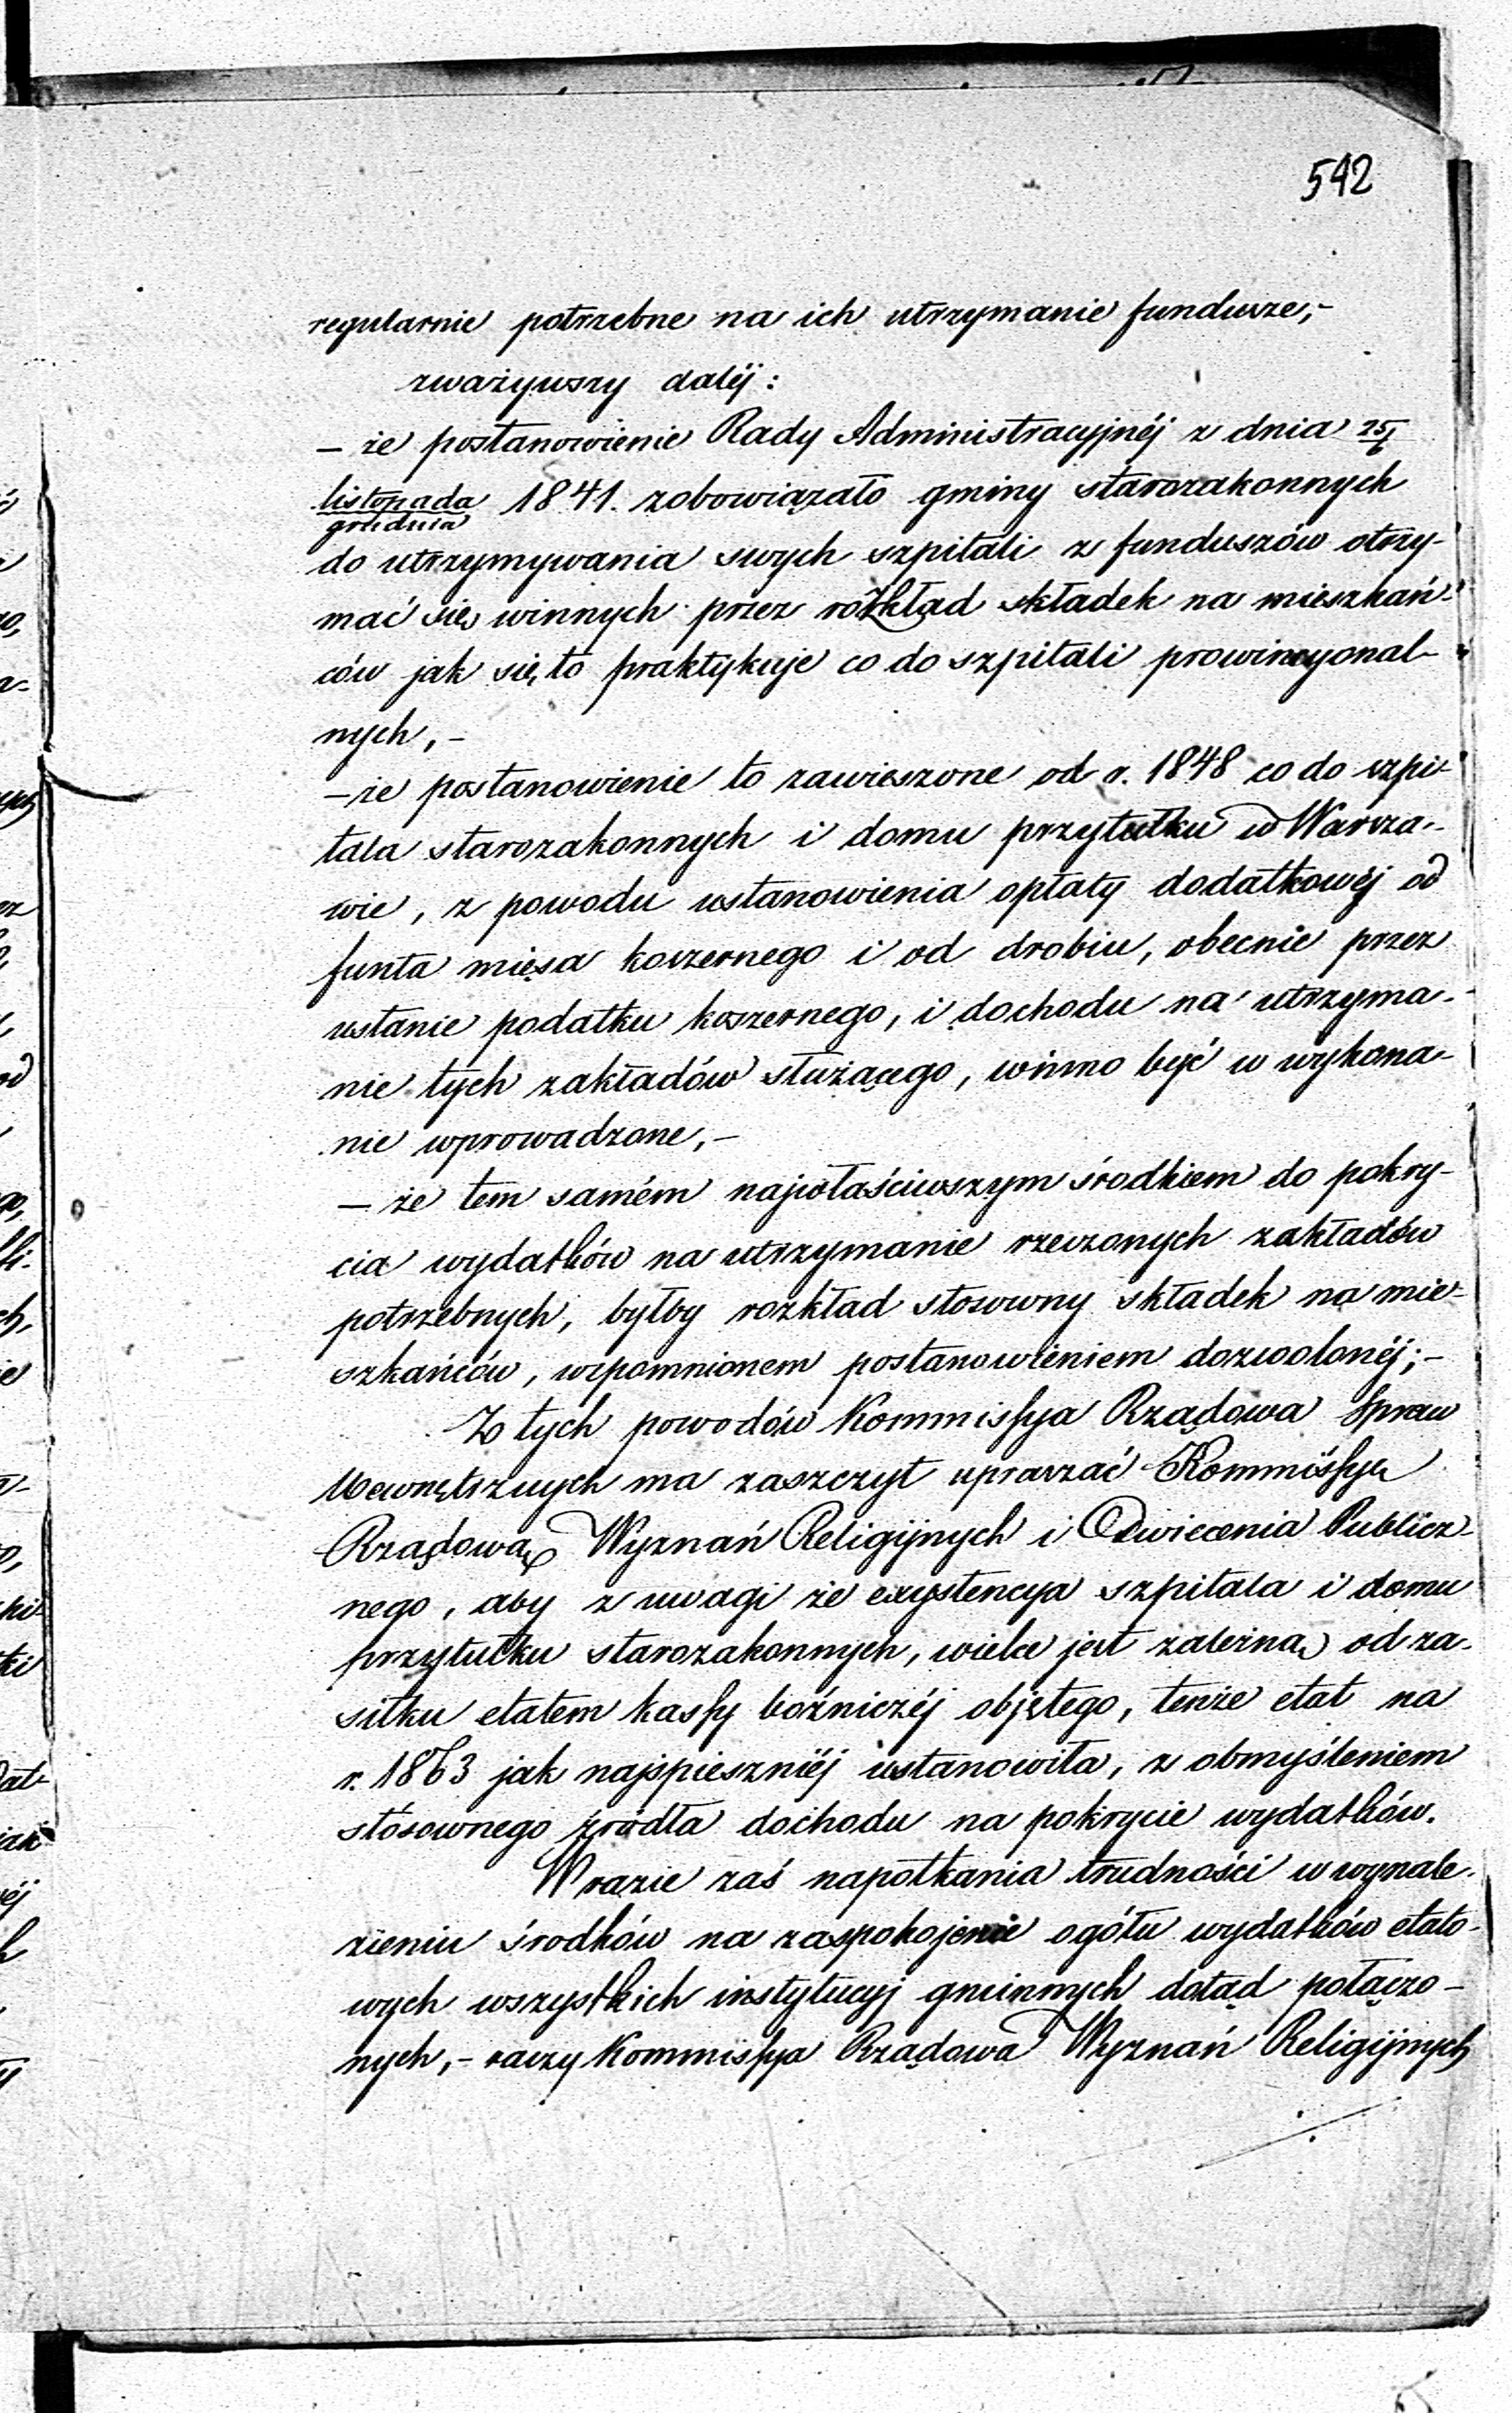 542
regularnie potrzebne na ich utrzymanie fundusze,-
zważywszy daléj:
- że postanowienie Rady Administracyjnéj z dnia
listopada/grudnia 1841. zobowiązało gminy starozakonnych
do utrzymywania swych szpitali z funduszów otrzy-
mać się winnych przez rozkład składek na mieszkań-
ców jak się to praktykuje co do szpitali prowincyonal-
nych,-
- że postanowienie to zawieszone od r. 1848 co do szpi-
tala starozakonnych i domu przytułku w Warsza-
wie, z powodu ustanowienia opłaty dodatkowéj od
funta mięsa koszernego i od drobiu, obecnie przez
ustanie podatku koszernego, i dochodu na utrzyma-
nie tych zakładów służącego, winno być w wykona-
nie wprowadzone,-
- że tem samém najwłaściwszym środkiem do pokry-
cia wydatków na utrzymanie rzeczonych zakładów
potrzebnych, byłby rozkład stosowny składek na mie-
szkańców, wspomnionem postanowieniem dozwolonéj;-
Z tych powodów Kommissya Rządowa Spraw
Wewnętrznych ma zaszczyt upraszać Kommissyę
Rządową Wyznań Religijnych i Oświecenia Publicz-
nego, aby z uwagi że exystencya szpitala i domu
przytułku starozakonnych, wielce jest zależną od za-
siłku etatem kassy bożniczéj objętego, tenże etat na
r. 1863 jak najspieszniéj ustanowiła, z obmyśleniem
stósownego źródła dochodu na pokrycie wydatków.
W razie zaś napotkania trudności w wynale-
zieniu środków na zaspokojenie ogółu wydatków etato-
wych wszystkich instytucyj gminnych dotąd połączo-
nych,- raczy Kommissya Rządowa Wyznań Religijnych